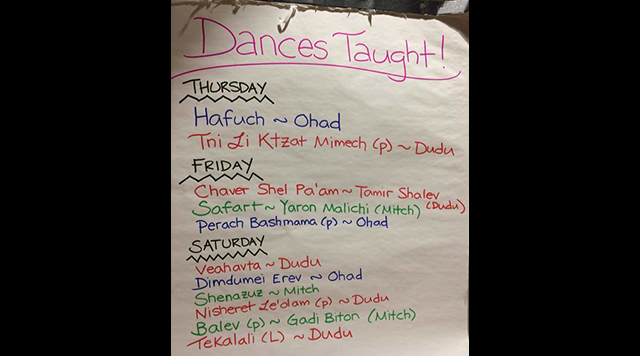 Dances Taught!
THURSDAY
Hafuch ~ Ohad
Tni Li Ktzat Mimech (p) ~ Dudu
FRIDAY
Chaver Shel Pa'am ~ Tamir Shalev (Dudu)
Safart ~ Yaron Malichi (Mitch)
Perach Bashmama (p) ~ Ohad
SATURDAY
Veahavta ~ Dudu
Dimdumei Erev ~ Ohad
Shenazuz ~ Mitch
Nisheret Le'olam (p) ~ Dudu
Balev (p) ~ Gadi Biton (Mitch)
TeKalali (L) ~ Dudu